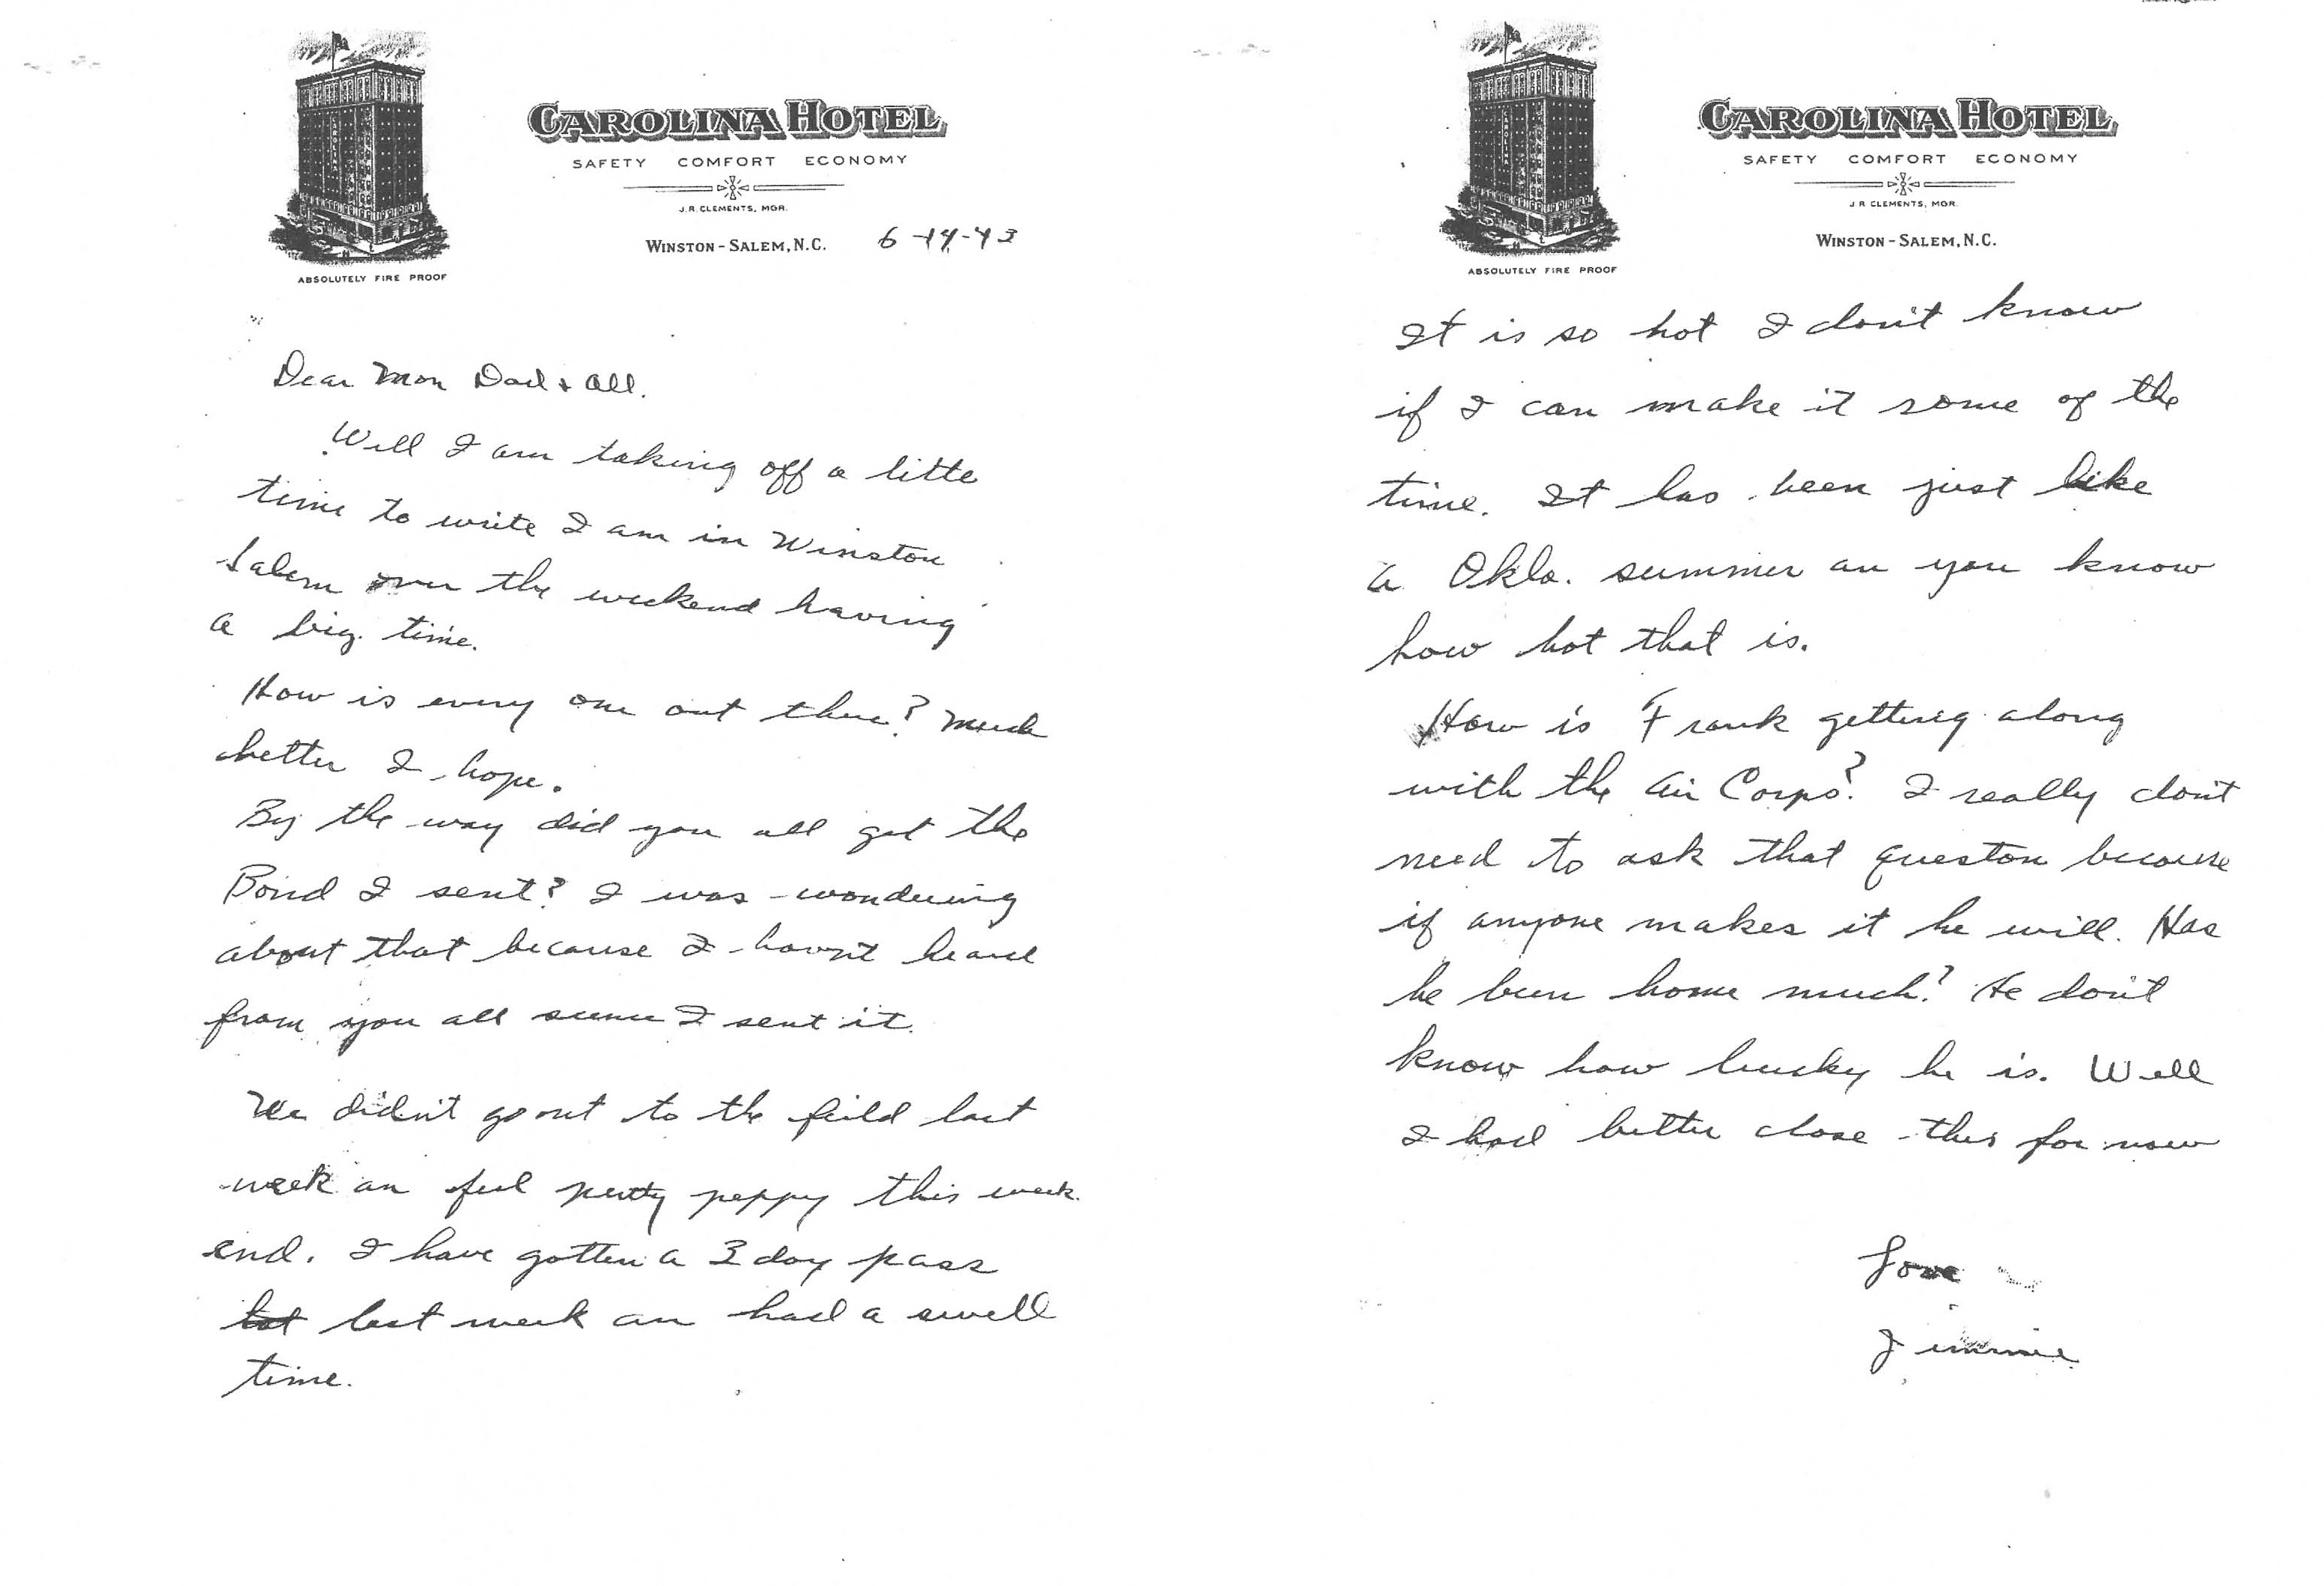 CAROLINA HOTEL
SAFETY COMFORT ECONOMY
J.R. CLEMENTS, MGR.
WINSTON-SALEM, N.C. 6-14-43
ABSOLUTELY FIRE PROOF
Dear Mom Dad & all.
Well I am taking off a litte
time to write I am in Winston
Salem over the weekend having
a big time.
How is every one out there? Much
better I hope.
By the way did you all get the
Bond I sent? I was wondering
about that because I havn't heard
from you all since I sent it.
We didn't go out to the field last
week an feel pretty peppy this week
end. I have gotten a 3 day pass
last week an had a swell
time.
CAROLINA HOTEL
SAFETY COMFORT ECONOMY
J R CLEMENTS, MGR.
WINSTON-SALEM, N.C.
ABSOLUTELY FIRE PROOF
It is so hot I don't know
if I can make it some of the
time. It has been just like
a Okla. summer an you know
how hot that is.
How is Frank getting along
with the Air Corps? I really don't
need to ask that queston because
if anyone makes it he will. Has
he been home much? He don't
know how lucky he is. Well
I had better close this for now
Love
Jimmie